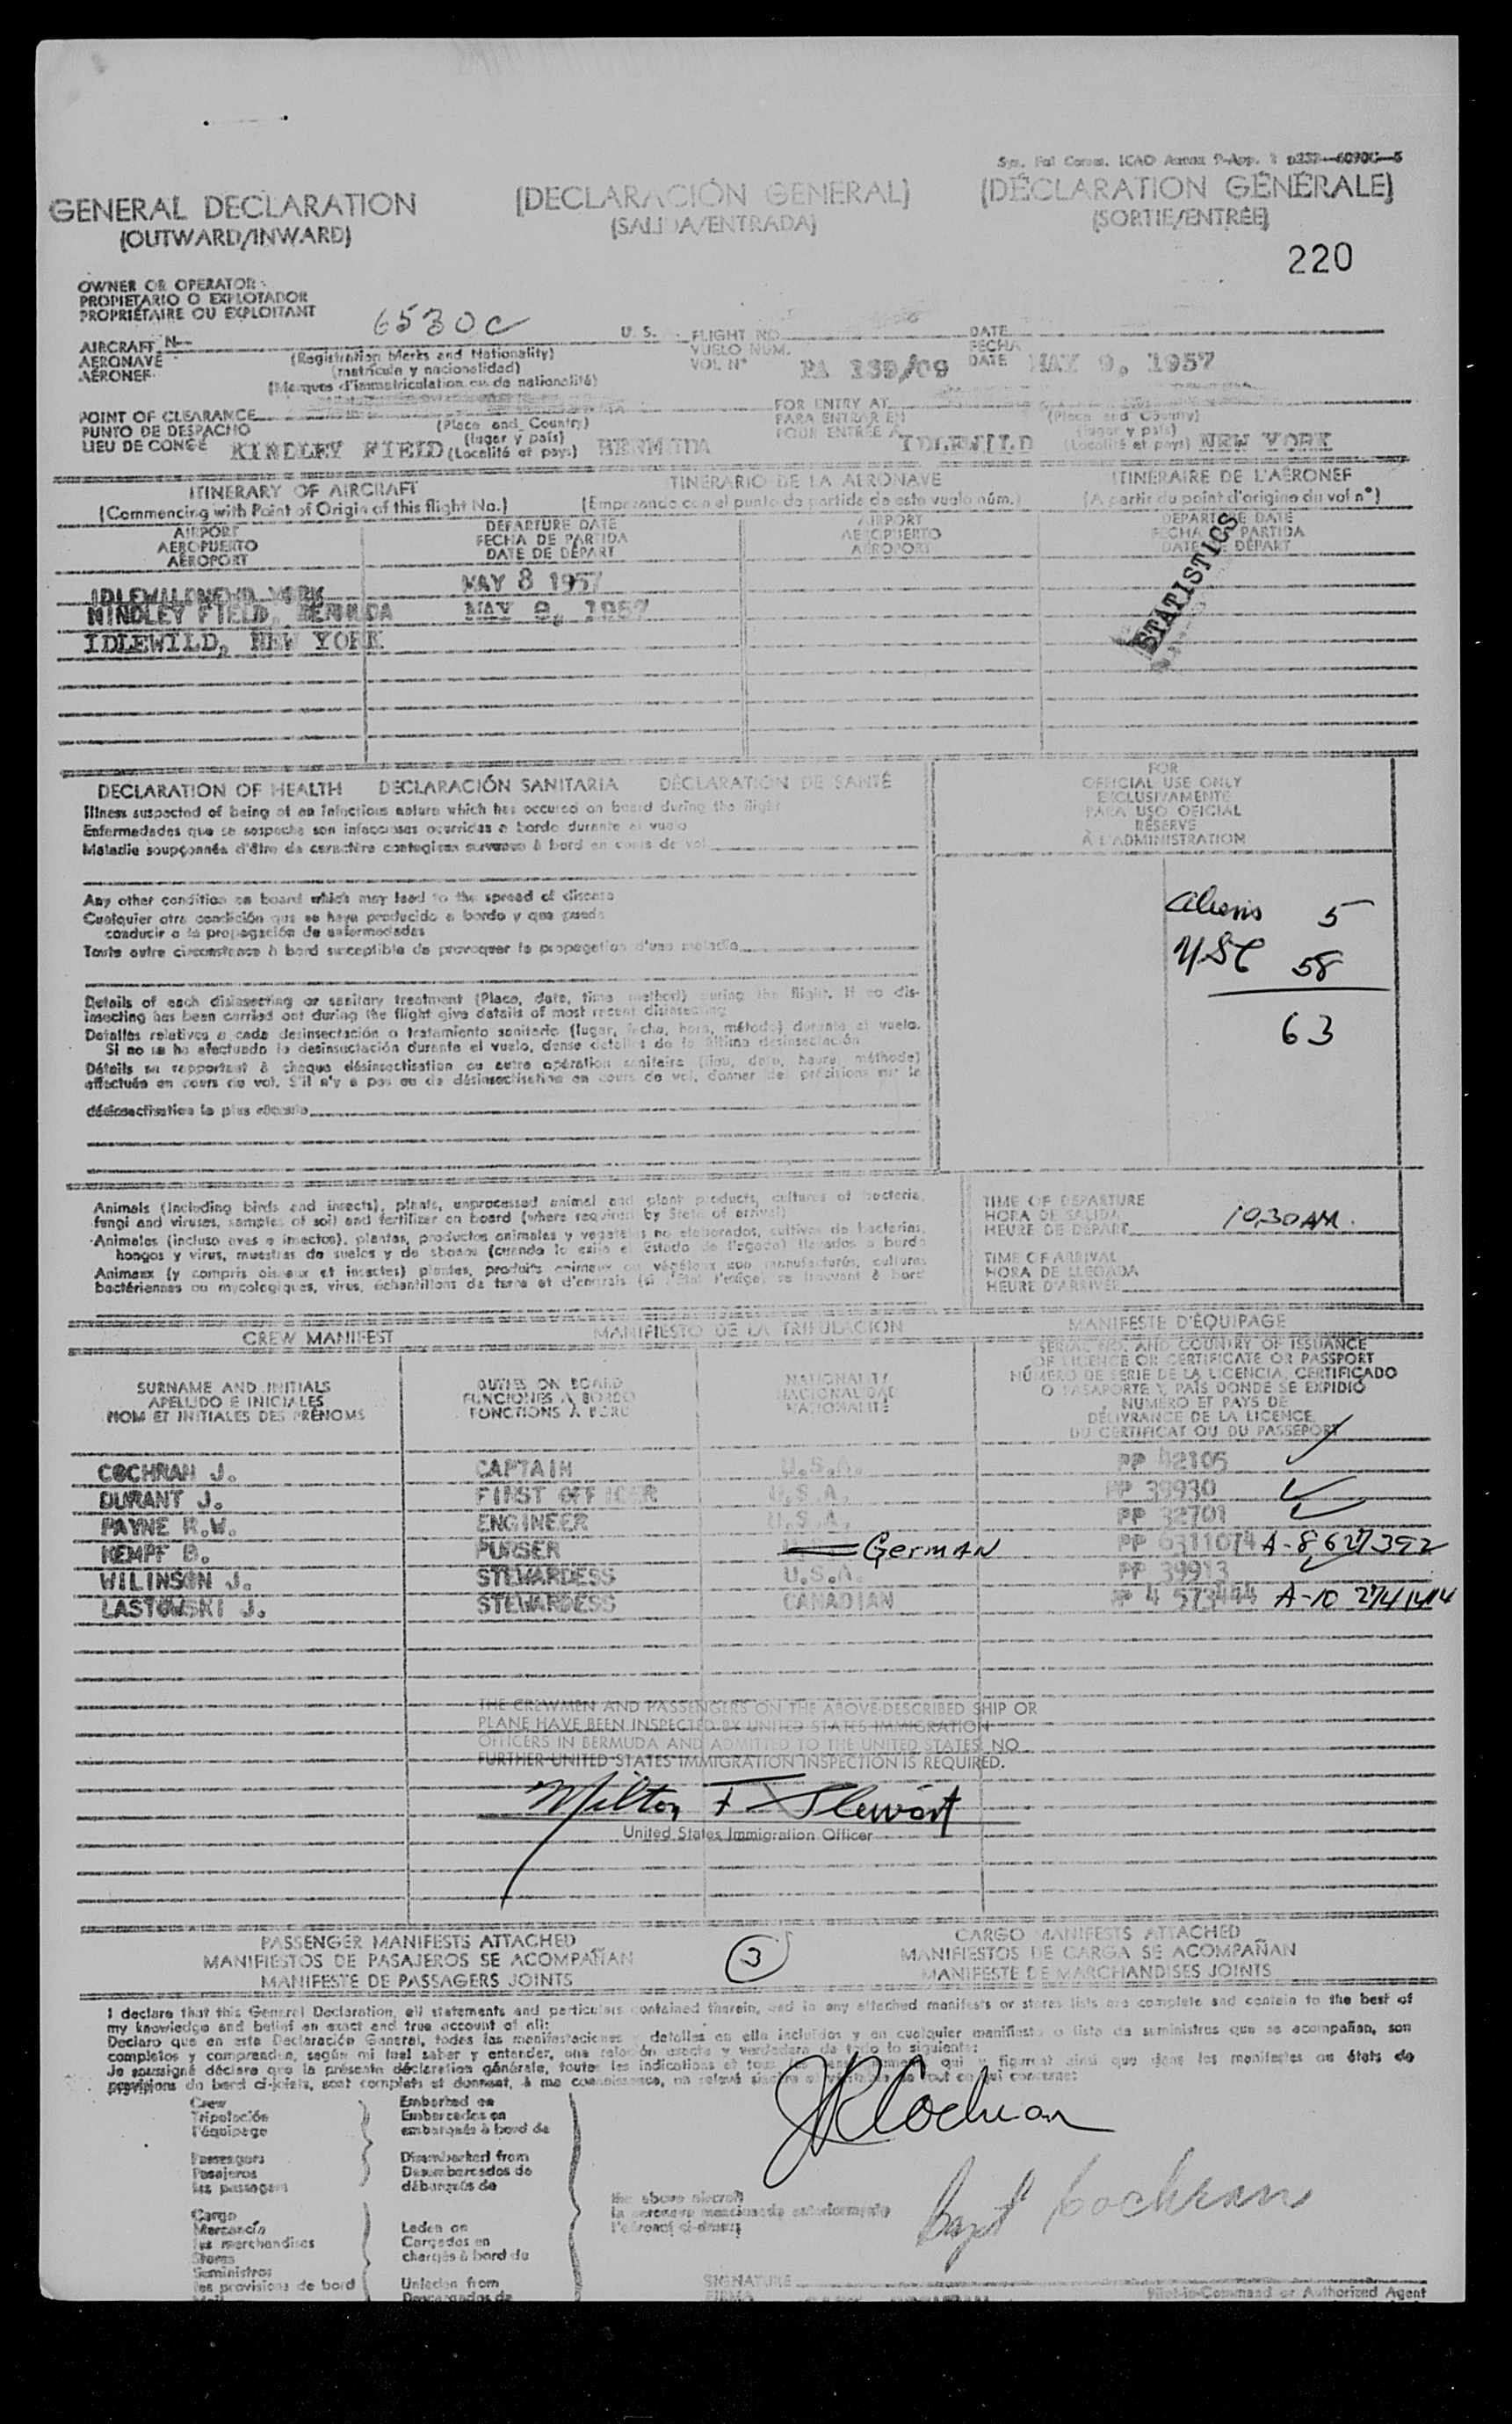 GENERAL DECLARATION
(OUTWARD/INWARD)
[DECLARACIÓN GENERAL]
(SALIDA/ENTRADA)
(DÉCLARATION GÉNÉRALE)
(SORTIE/ENTRÉE)
220
OWNER OR OPERATOR
PROPIETARIO O EXPLOTADOR
PROPRIÉTAIRE OU EXPLOITANT
AIRCRAFT N 6530C U. S. FLIGHT NO. DATE
AERONAVE (Registration Marks and Nationality) VUELO NUM. FECHA
AÉRONEF (matrícula y nacionalidad) VOL N° PA 139/09 DATE MAY 9, 1957
(Marques d'immatriculation ou de nationalité)
POINT OF CLEARANCE (Place and Country) FOR ENTRY AT (Place and Country)
PUNTO DE DESPACHO (lugar y país) PARA ENTRAR EN (lugar y país)
LIEU DE CONGÉ KINDLEY FIELD (Localité et pays) BERMUDA POUR ENTRÉE A IDLEWILD (Localité et pays) NEW YORK
ITINERARY OF AIRCRAFT ITINERARIO DE LA AERONAVE ITINÉRAIRE DE L'AÉRONEF
(Commencing with Point of Origin of this flight No.) (Empezando con el punto de partida de este vuelo núm.) (A partir du point d'origine du vol n°)
AIRPORT DEPARTURE DATE AIRPORT DEPARTURE DATE
AEROPUERTO FECHA DE PARTIDA AEROPUERTO FECHA DE PARTIDA
AÉROPORT DATE DE DÉPART AÉROPORT DATE DE DÉPART
STATISTICS
MAY 8 1957
KINDLEY FIELD, BERMUDA MAY 9, 1957
IDLEWILD, NEW YORK
DECLARATION OF HEALTH DECLARACIÓN SANITARIA DÉCLARATION DE SANTÉ
Illness suspected of being of an infectious nature which has occured on board during the flight
Enfermedades que se sospecha son infecciosas ocurridas a bordo durante el vuelo
Maladie soupçonnée d'être de caractère contagieux survenue à bord en cours de vol
Any other condition on board which may lead to the spread of disease
Cualquier otra condición que se haya producido a bordo y que pueda
conducir a la propagación de enfermedades
Toute autre circonstance à bord susceptible de provoquer la propagation d'une maladie
Details of each disinsecting or sanitary treatment (Place, date, time method) during the flight. If no dis-
insecting has been carried out during the flight give details of most recent disinsecting
Detalles relativos a cada desinsectación o tratamiento sanitario (lugar, fecha, hora, método) durante el vuelo.
Si no se ha efectuado la desinsectación durante el vuelo, dense detalles de la última desinsectación
Détails se rapportant à chaque désinsectisation ou autre opération sanitaire (lieu, date, heure, méthode)
effectuée en cours du vol. S'il n'y a pas eu de désinsectisation en cours de vol, donner des précisions sur la
désinsectisation la plus récente
FOR
OFFICIAL USE ONLY
EXCLUSIVAMENTE
PARA USO OFICIAL
RÉSERVÉ
À L'ADMINISTRATION
Aliens 5
USC 58
63
Animals (Including birds and insects), plants, unprocessed animal and plant products, cultures of bacteria,
fungi and viruses, samples of soil and fertilizer on board (where required by State of arrival)
Animales (incluso aves e insectos), plantas, productos animales y vegetales no elaborados, cultivos de bacterias,
hongos y virus, muestras de suelos y de abonos (cuando lo exija el Estado de llegada) llevados a bordo
Animaux (y compris oiseaux et insectes) plantes, produits animaux ou végétaux non manufacturés, cultures
bactériennes ou mycologiques, virus, échantillons de terre et d'engrais (si l'Etat l'exige) se trouvant à bord
TIME OF DEPARTURE
HORA DE SALIDA
HEURE DE DÉPART 10,30 AM.
TIME OF ARRIVAL
HORA DE LLEGADA
HEURE D'ARRIVÉE
CREW MANIFEST MANIFIESTO DE LA TRIPULACIÓN MANIFESTE D'ÉQUIPAGE
SURNAME AND INITIALS
APELLIDO E INICIALES
NOM ET INITIALES DES PRÉNOMS
DUTIES ON BOARD
FUNCIONES A BORDO
FONCTIONS À BORD
NATIONALITY
NACIONALIDAD
NATIONALITÉ
SERIAL NO. AND COUNTRY OF ISSUANCE
OF LICENCE OR CERTIFICATE OR PASSPORT
NÚMERO DE SERIE DE LA LICENCIA, CERTIFICADO
O PASAPORTE Y PAÍS DONDE SE EXPIDIÓ
NUMÉRO ET PAYS DE
DÉLIVRANCE DE LA LICENCE,
DU CERTIFICAT OU DU PASSEPORT
COCHRAN J. CAPTAIN U.S.A. PP 42105
DURANT J. FIRST OFFICER U.S.A. PP 39930
PAYNE R.W. ENGINEER U.S.A. PP 32701
KEMPF B. PURSER German PP 6311074 A-8 627392
WILINSON J. STEWARDESS U.S.A. PP 39913
LASTOWSKI J. STEWARDESS CANADIAN PP 4 573444 A-10 274 1414
THE CREWMEN AND PASSENGERS ON THE ABOVE-DESCRIBED SHIP OR
PLANE HAVE BEEN INSPECTED BY UNITED STATES IMMIGRATION
OFFICERS IN BERMUDA AND ADMITTED TO THE UNITED STATES. NO
FURTHER UNITED STATES IMMIGRATION INSPECTION IS REQUIRED.
Milton F Stewart
United States Immigration Officer
PASSENGER MANIFESTS ATTACHED
MANIFIESTOS DE PASAJEROS SE ACOMPAÑAN
MANIFESTE DE PASSAGERS JOINTS
3
CARGO MANIFESTS ATTACHED
MANIFIESTOS DE CARGA SE ACOMPAÑAN
MANIFESTE DE MARCHANDISES JOINTS
I declare that this General Declaration, all statements and particulars contained therein, and in any attached manifests or stores lists are complete and contain to the best of
my knowledge and belief an exact and true account of all:
Declaro que en esta Declaración General, todas las manifestaciones y detalles en ella incluidos y en cualquier manifiesto o lista de suministros que se acompañan, son
completos y comprenden, según mi leal saber y entender, una relación exacta y verdadera de todo lo siguiente:
Je soussigné déclare que la présente déclaration générale, toutes les indications et tous qui y figurent ainsi que dans les manifestes ou états de
provisions de bord ci-joints, sont complets et donnent, à ma connaissance, un relevé sincère et véritable de tout ce qui concerne:
Crew
Tripulación
l'équipage
Passengers
Pasajeros
les passagers
Cargo
Mercancía
les marchandises
Stores
Suministros
les provisions de bord
Embarked on
Embarcados en
embarqués à bord de
Disembarked from
Desembarcados de
débarqués de
Laden on
Cargados en
chargés à bord du
Unladen from
Descargados de
the above aircraft
la aeronave mencionada anteriormente
l'aéronef ci-dessus
JR Cochran
Capt Cochran
SIGNATURE
FIRMA
Pilot-in-Command or Authorized Agent